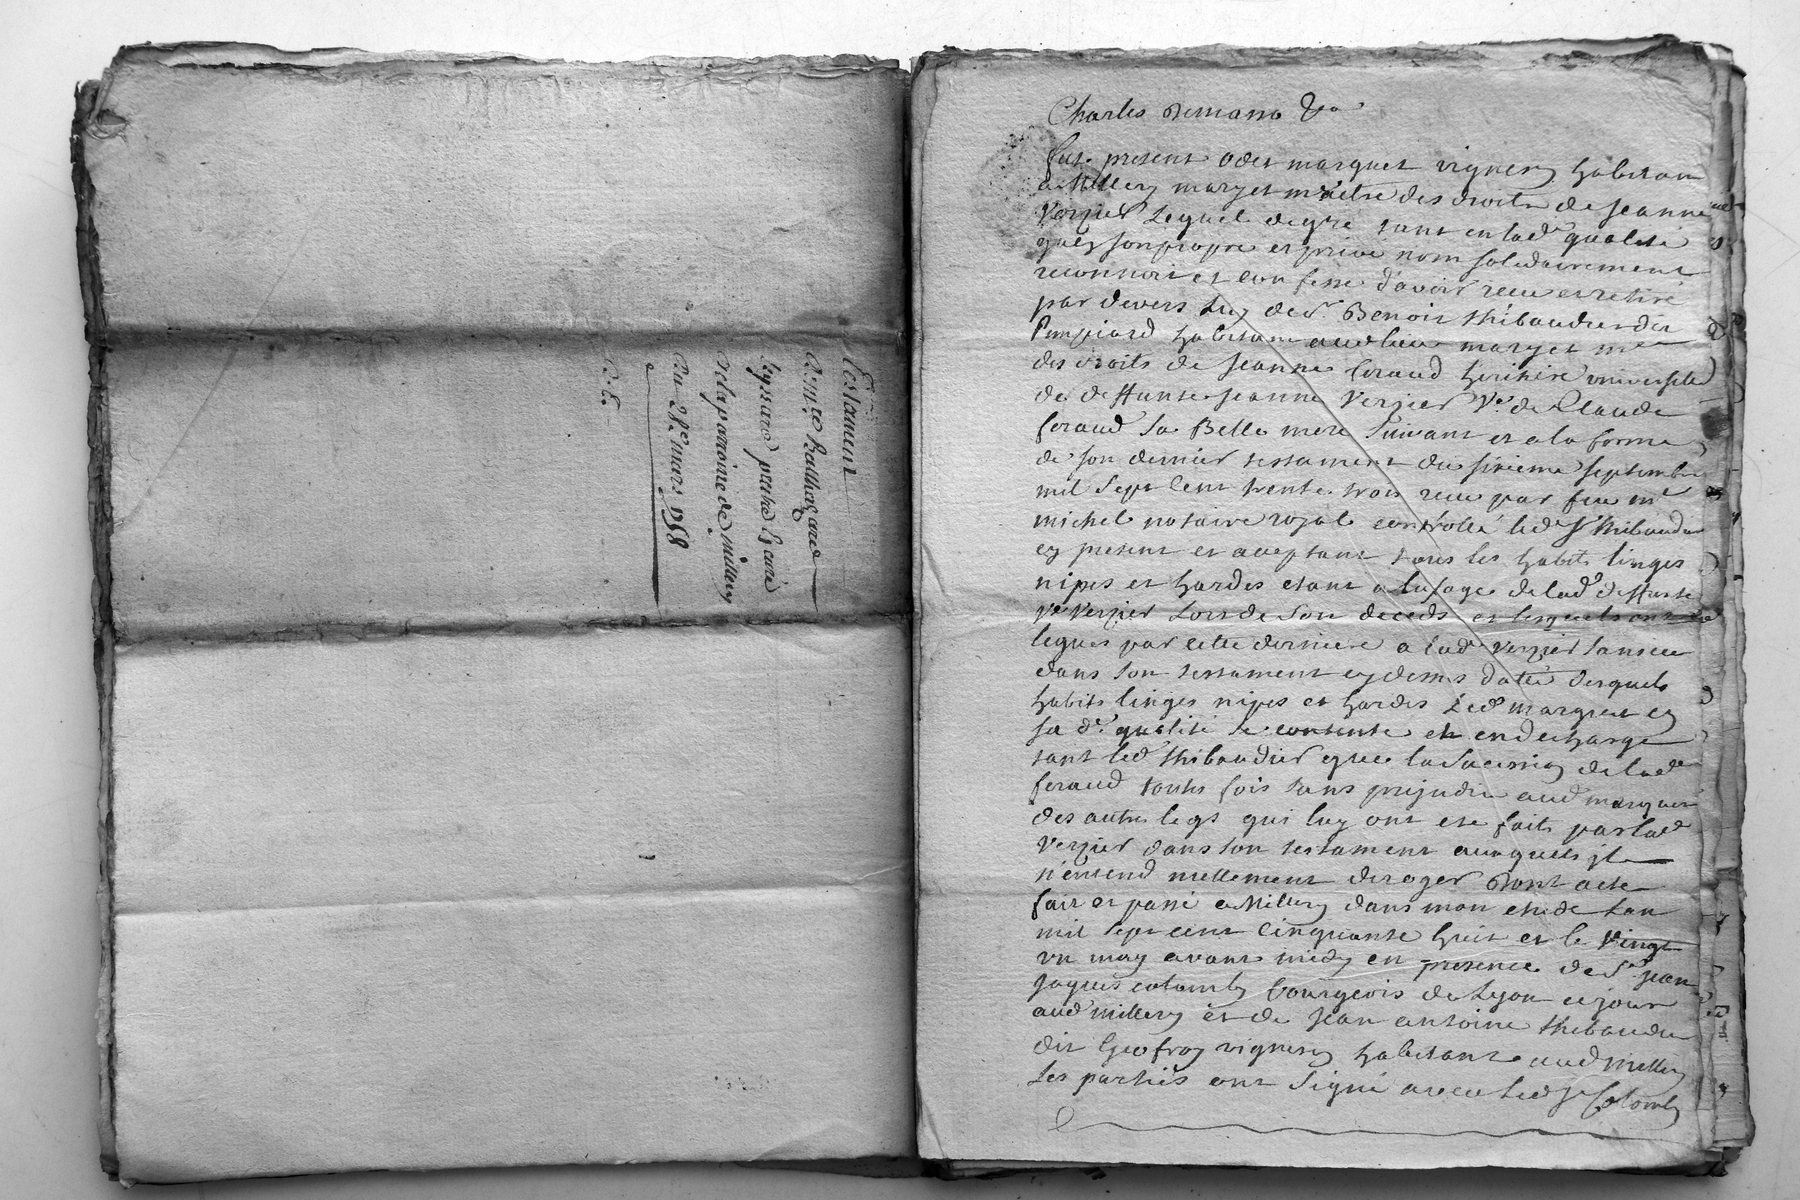 Testament
de m.re Balthazard
pretre & curé
de la parroisse de millery
du 28e mars 1758
Charles &a
fut present odet marguet vigneron habitant
a Millery mary et maître des droits de jeanne
Verzier Lequel de gré tant en lad.e qualité
qu'en son propre et privé nom solidairement
reconnoit et confesse d'avoir receu et retiré
par devers Luy de s.r Benoit thibaudier dit
habitant aud lieu mary et m.e
des droits de jeanne feraud heritiere universelle
de deffunte jeanne Verzier V.e de Claude
feraud sa Belle mere suivant et a la forme
de son dernier testament du sixieme septembre
mil sept cent trente trois receu par feu m.e
michel notaire royal controllé led s.r thibaudier
cy present et acceptant tous les habits linges
nipes et hardes etant a l'usage de lad.e deffunte
V.e Verzier Lors de son deceds et lesquels ont eté
legués par cette derniere a lad.e Verzier sa niece
dans son testament cy dessus datté desquels
habits linges nipes et hardes Led marguet en
sa d.e qualité se contente et en decharge
tant led thibaudier que la succession de lad.e
feraud toutes fois sans prejudice aud marguet
des autres legs qui luy ont eté faits par lad.e
Verzier dans son testament auxquels jl
n'entend nullement deroger Dont acte
fait et passé a Millery dans mon etude Lan
mil sept cent cinquante huit et le vingt
un may avant midy en presence de S.r jean
jaques colomby bourgeois de Lyon ce jour
aud millery et de jean antoine thibaudier
dit Geofroy vigneron habitant aud millery
Les parties ont signé avec Led s.r Colomby